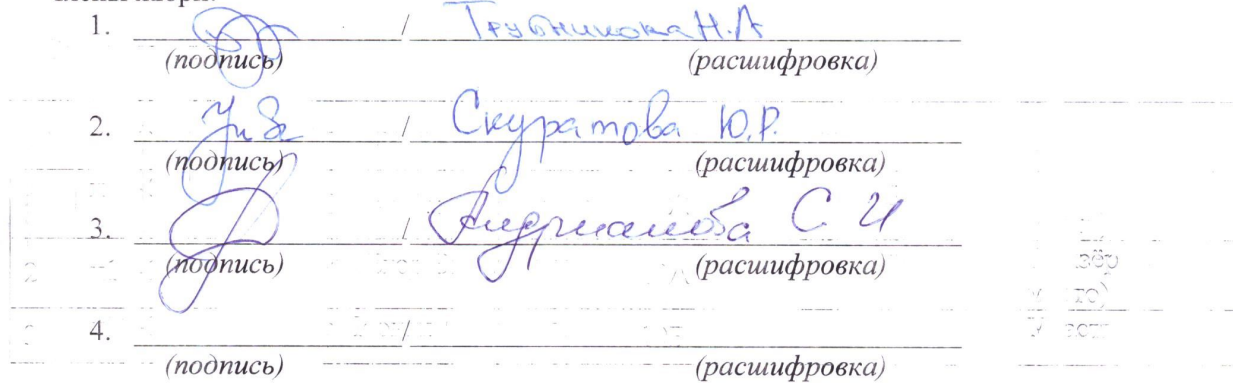 1. / Трубникова Н.А
(подпись) (расшифровка)
2. / Скуратова Ю.Р.
(подпись) (расшифровка)
3. / Андрианова С И
(подпись) (расшифровка)
4. /
(подпись) (расшифровка)